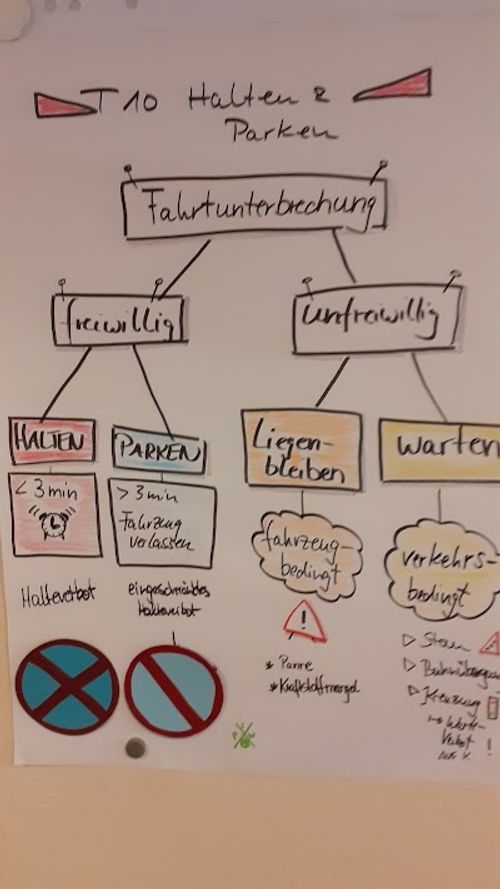 T10 Halten &
Parken
Fahrtunterbrechung
freiwillig
unfreiwillig
HALTEN
PARKEN
Liegen-
bleiben
warten
< 3 min
> 3 min
Fahrzeug
verlassen
fahrzeug-
bedingt
verkehrs-
bedingt
Halteverbot
eingeschränktes
Halteverbot
!
* Panne
* Kraftstoffmangel
▷ Stau
▷ Bahnübergang
▷ Kreuzung
!